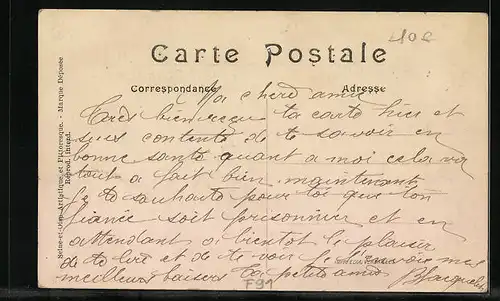 40f
Carte Postale
Correspondance
Adresse
Seine-et-Oise Artistique et Pittoresque. - Marque Déposée
Reprod. Interd.
Ma cher amie
Très bien reçue ta carte hier et
suis contente de te savoir en
bonne santé quant a moi cela va
tout a fait bien maintenant
Je te souhaite pour toi que ton
fiancé soit prisonnier et en
attendant a bientot le plaisir
de te lire et de te voir je t'envoie mes
meilleurs baisers Ta petite amie
F91